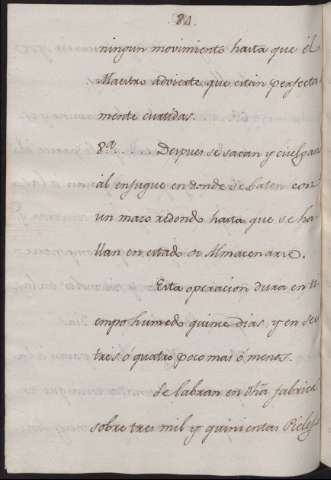 84.
ningun movimiento hasta que el
Maestro advierte que están perfecta
mente curtidas.
8.º Despues se sacan y cuelgan
al enjugue en donde se baten con
un mazo redondo hasta que se ha
llan en estado de Almacenarse.
Esta operacion dura en ti
empo humedo quince dias, y en seco
tres ó quatro poco mas ó menos.
Se labran en dha fabrica
sobre tres mil y quinientas Pieles